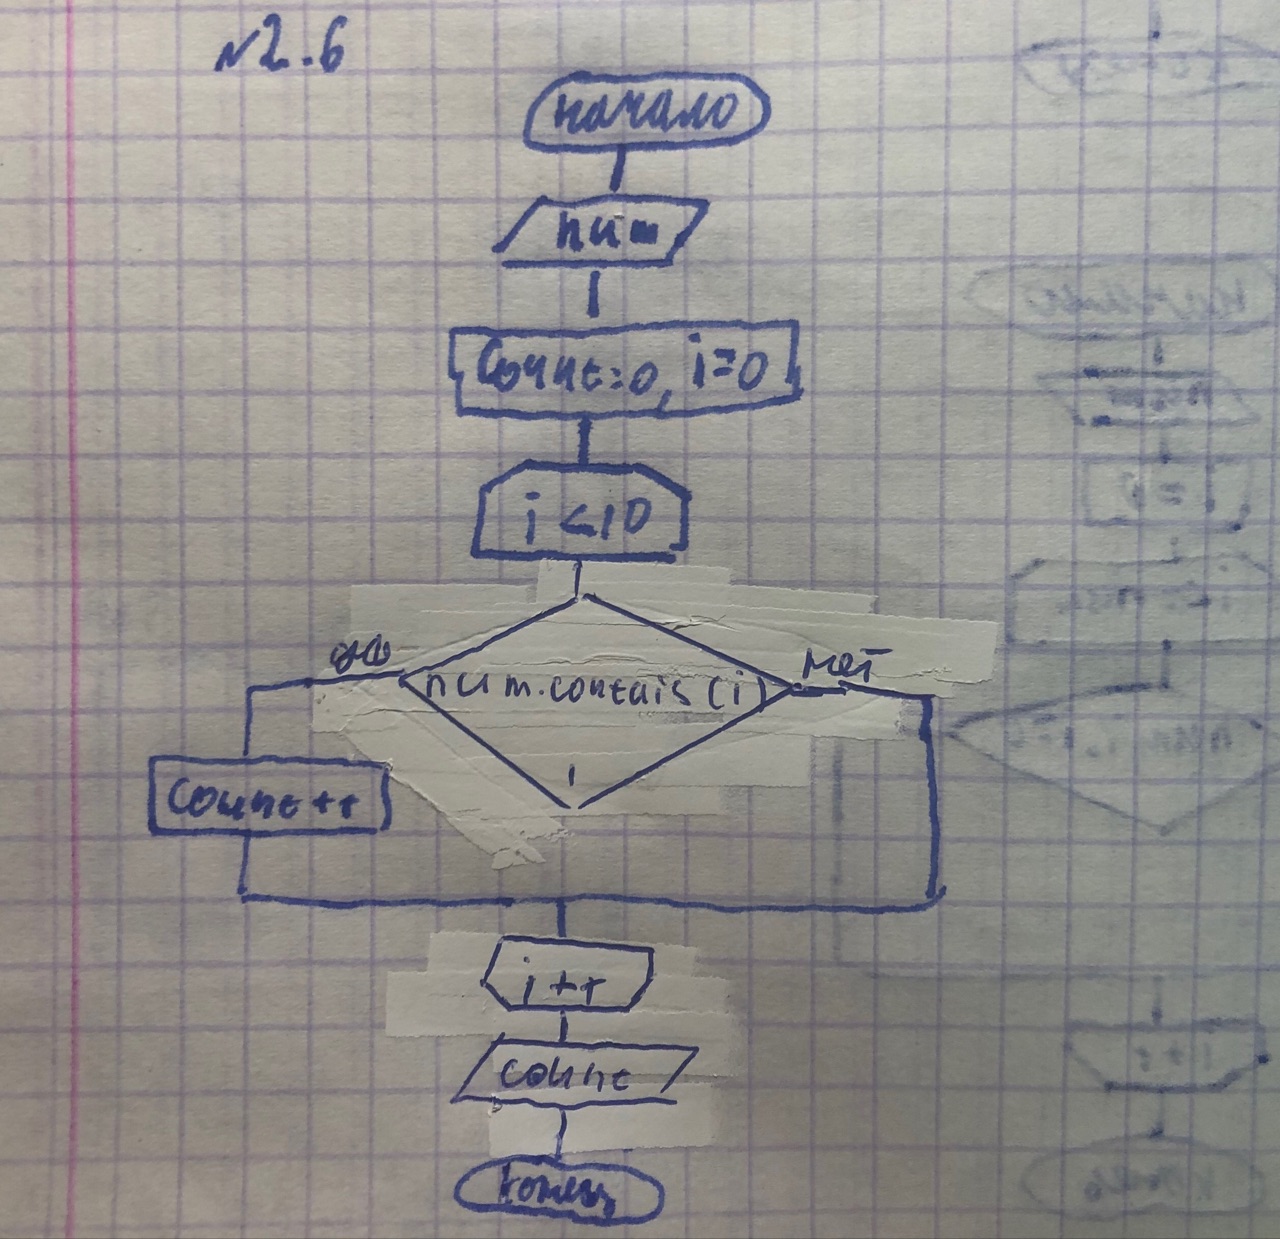 №2.6
начало
num
Count=0, i=0
i <10
да
нет
num.contais(i)
Count++
i++
count
конец